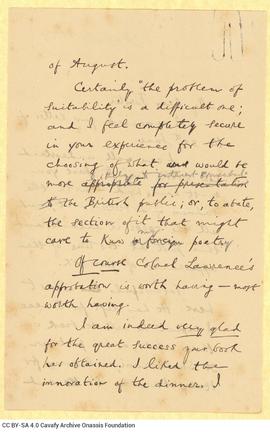 of August.
Certainly "the problem of
suitability" is a difficult one;
and I feel completely secure
in your experience for the
choosing of what would be
more appropriate for presentation
to the British public; or, to
the section of it that might
care to know my poetry
Of course Colonel Lawrence's
approbation is worth having — most
worth having.
I am indeed very glad
for the great success your book
has obtained. I liked the
innovation of the dinner. I
CC BY-SA 4.0 Cavafy Archive Onassis Foundation